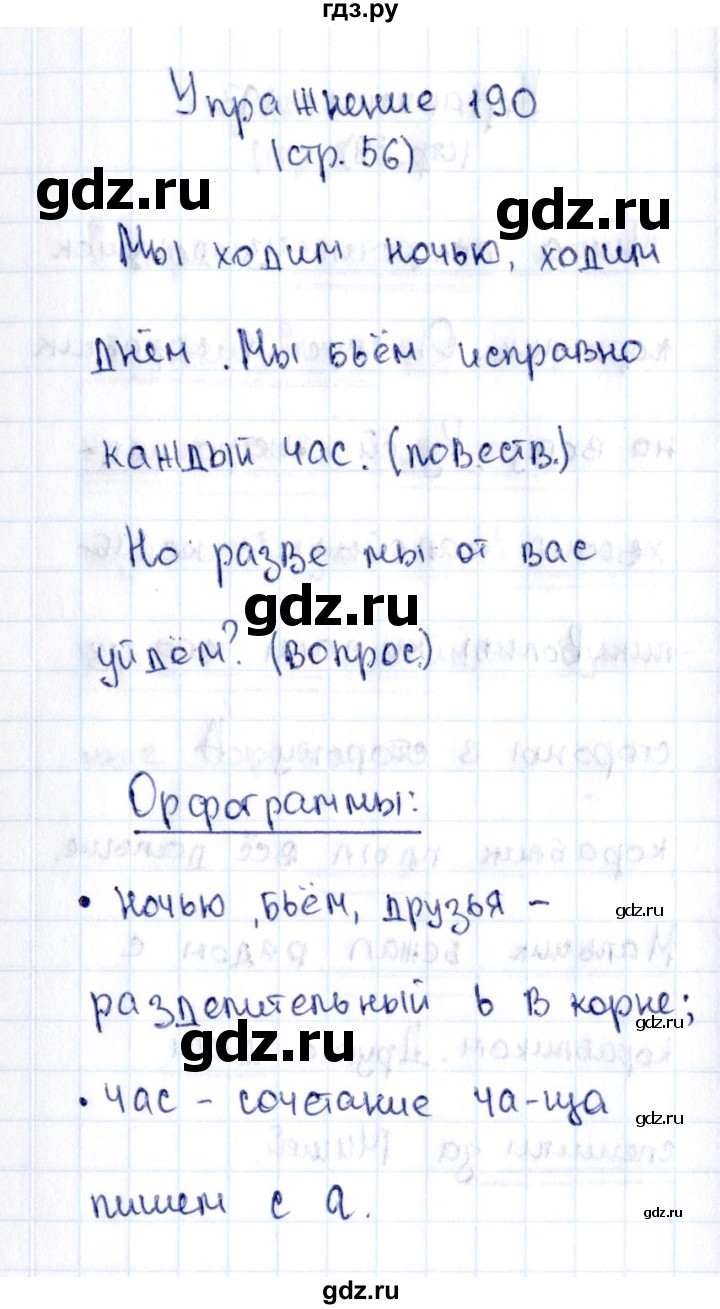 гдз.ру
Упражнение 190
(стр. 56)
gdz.ru
gdz.ru
Мы ходим ночью, ходим
днём. Мы бьём исправно
каждый час. (повеств.)
Но разве мы от вас
gdz.ru
уйдём? (вопрос.)
Орфограммы:
• ночью, бьём, друзья –
gdz.ru
разделительный ь в корне;
gdz.ru
gdz.ru
• час – сочетание ча-ща
gdz.ru
пишем с а.
gdz.ru
gdz.ru